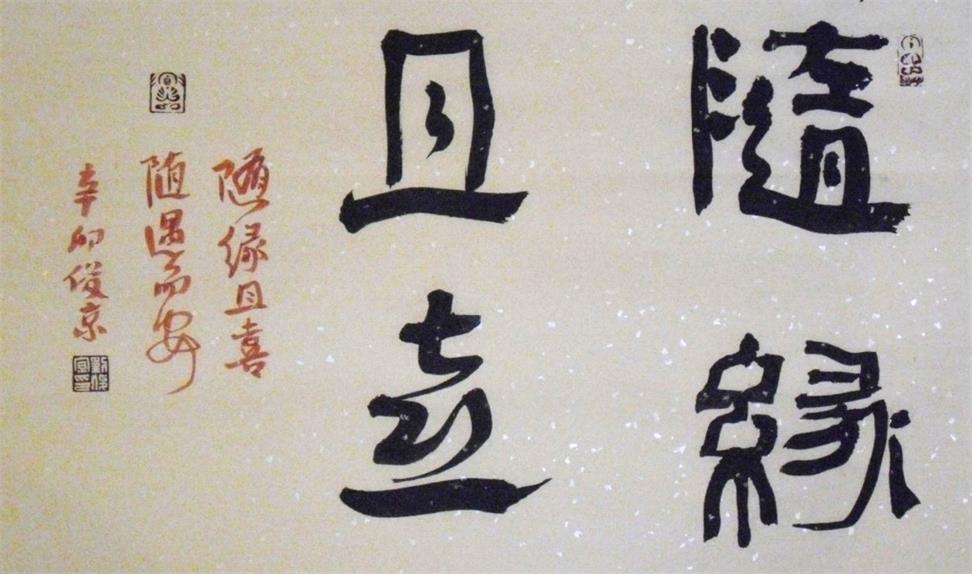 隨緣
且喜
随缘且喜
随遇而安
辛卯俊京